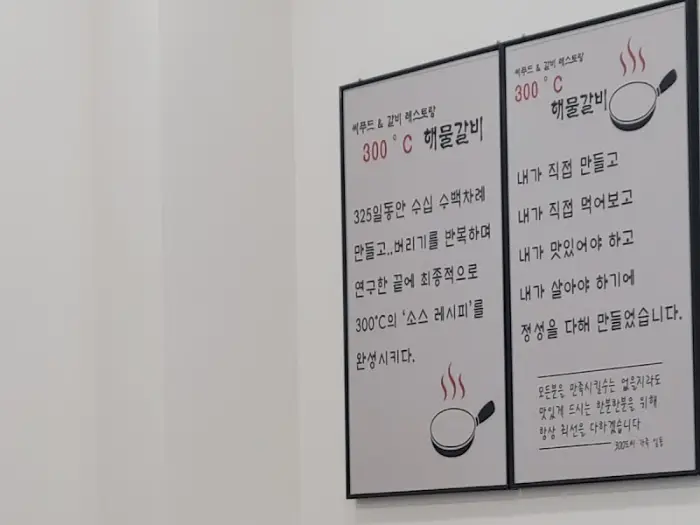 씨푸드 & 갈비 레스토랑
300°C 해물갈비
325일동안 수십 수백차례
만들고..버리기를 반복하며
연구한 끝에 최종적으로
300°C의 '소스 레시피'를
완성시키다.
씨푸드 & 갈비 레스토랑
300°C
해물갈비
내가 직접 만들고
내가 직접 먹어보고
내가 맛있어야 하고
내가 살아야 하기에
정성을 다해 만들었습니다.
모든분을 만족시킬수는 없을지라도
맛있게 드시는 한분한분을 위해
항상 최선을 다하겠습니다